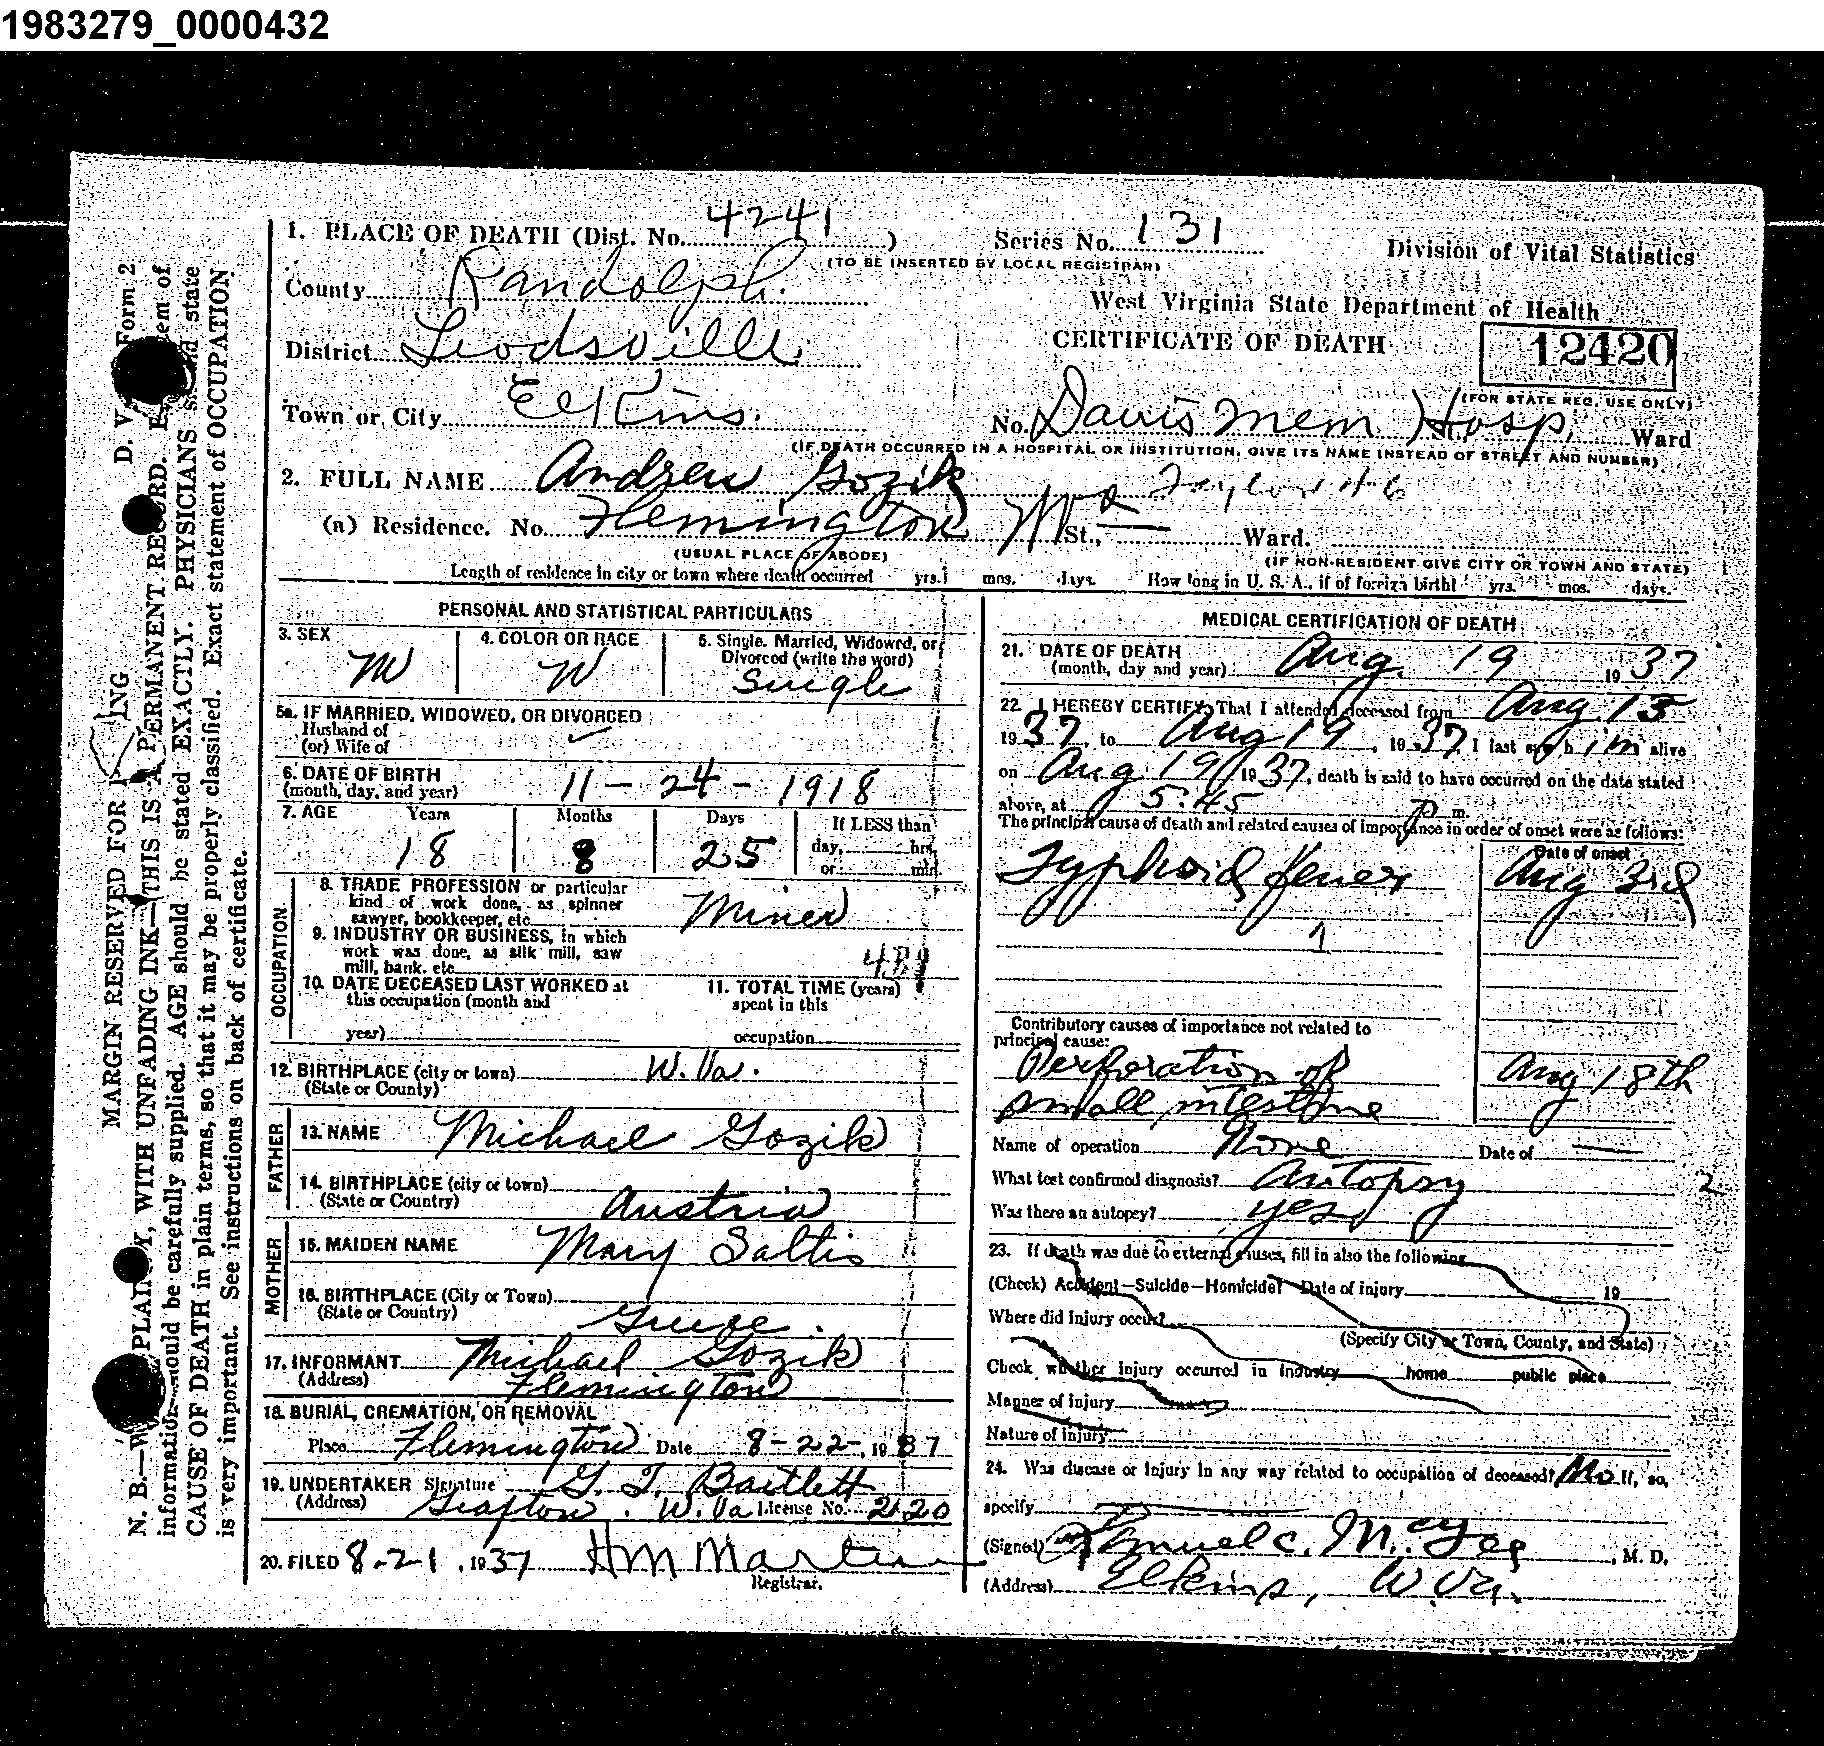 1983279_0000432
1. PLACE OF DEATH (Dist. No. 4241 )
Series No. 131
(TO BE INSERTED BY LOCAL REGISTRAR)
Division of Vital Statistics
County Randolph.
West Virginia State Department of Health
District Leadsville
CERTIFICATE OF DEATH
12420
(FOR STATE REG. USE ONLY)
Town or City Elkins.
No. Davis Mem Hosp, St. Ward
(IF DEATH OCCURRED IN A HOSPITAL OR INSTITUTION, GIVE ITS NAME INSTEAD OF STREET AND NUMBER)
2. FULL NAME Andrew Gozik
Taylor 46
(a) Residence. No. Flemington W Va St., Ward.
(USUAL PLACE OF ABODE)
(IF NON-RESIDENT GIVE CITY OR TOWN AND STATE)
Length of residence in city or town where death occurred yrs. mos. days. How long in U. S. A., if of foreign birth? yrs. mos. days.
PERSONAL AND STATISTICAL PARTICULARS
3. SEX
M
4. COLOR OR RACE
W
5. Single, Married, Widowed, or
Divorced (write the word)
Single
5a. IF MARRIED, WIDOWED, OR DIVORCED
Husband of
(or) Wife of
6. DATE OF BIRTH
(month, day, and year) 11 - 24 - 1918
7. AGE Years Months Days If LESS than
day, hrs.
or min.
18 8 25
OCCUPATION
8. TRADE PROFESSION or particular
kind of work done, as spinner
sawyer, bookkeeper, etc. Miner
9. INDUSTRY OR BUSINESS, in which
work was done, as silk mill, saw
mill, bank, etc.
10. DATE DECEASED LAST WORKED at
this occupation (month and
year)
11. TOTAL TIME (years)
spent in this
occupation
12. BIRTHPLACE (city or town) W. Va.
(State or County)
FATHER
13. NAME Michael Gozik
14. BIRTHPLACE (city or town)
(State or Country) Austria
MOTHER
15. MAIDEN NAME Mary Saltis
16. BIRTHPLACE (City or Town)
(State or Country)
17. INFORMANT Michael Gozik
(Address) Flemington
18. BURIAL, CREMATION, OR REMOVAL
Place Flemington Date 8-22-, 1937
19. UNDERTAKER Signature G. T. Bartlett
(Address) Grafton. W. Va License No. 2120
20. FILED 8-21, 1937 H M Martin
Registrar.
MEDICAL CERTIFICATION OF DEATH
21. DATE OF DEATH
(month, day and year) Aug. 19 1937
22. I HEREBY CERTIFY, That I attended deceased from Aug 15
1937, to Aug 19, 1937, I last saw him alive
on Aug 19, 1937, death is said to have occurred on the date stated
above, at 5:45 p m.
The principal cause of death and related causes of importance in order of onset were as follows:
Date of onset
Typhoid fever Aug 3rd
1
Contributory causes of importance not related to
principal cause:
Perforation of
small intestine
Aug 18th
Name of operation None Date of
What test confirmed diagnosis? Autopsy
2
Was there an autopsy? yes
23. If death was due to external causes, fill in also the following
(Check) Accident—Suicide—Homicide? Date of injury 19
Where did injury occur?
(Specify City or Town, County, and State)
Check whether injury occurred in industry home public place
Manner of injury
Nature of injury
24. Was disease or injury in any way related to occupation of deceased? No If, so,
specify
(Signed) Samuel C. McGee, M. D.
(Address) Elkins, W. Va.
MARGIN RESERVED FOR
THIS IS A PERMANENT RECORD.
PLAINLY, WITH UNFADING INK
information should be carefully supplied. AGE should be stated EXACTLY. PHYSICIANS should state
CAUSE OF DEATH in plain terms, so that it may be properly classified. Exact statement of OCCUPATION
is very important. See instructions on back of certificate.